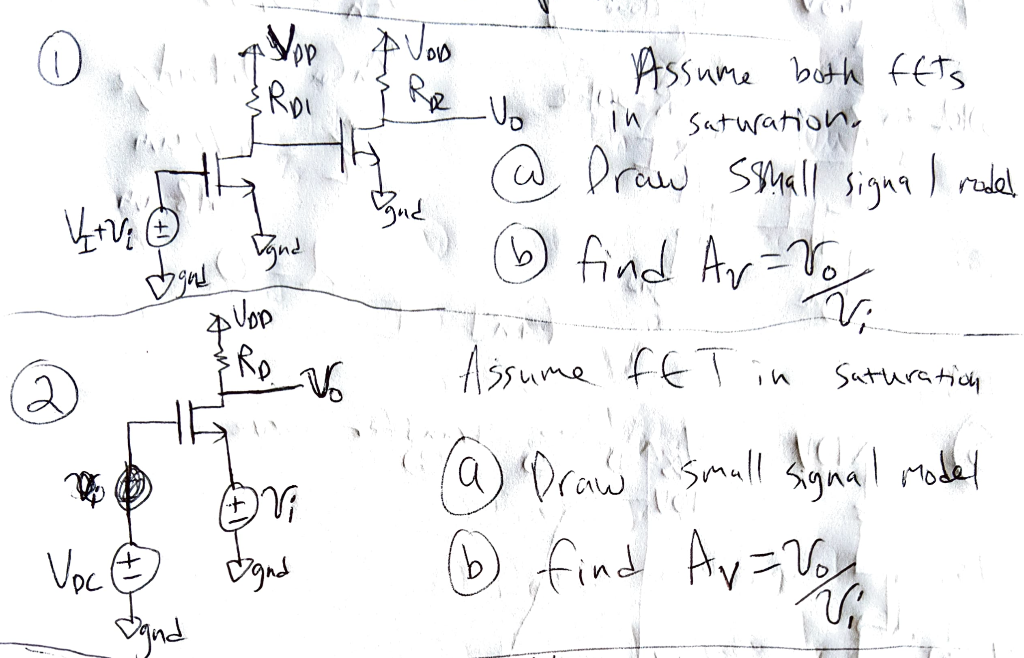 ①
V_DD
V_DD
R_D1
R_D2
V_o
V_I+v_i
gnd
gnd
gnd
Assume both fETs
in saturation.
ⓐ Draw Small signal model
ⓑ find A_v = v_o/v_i
②
V_DD
R_D
V_o
v_i
V_DC
gnd
gnd
Assume fET in saturation
ⓐ Draw small signal model
ⓑ find A_v = v_o/v_i